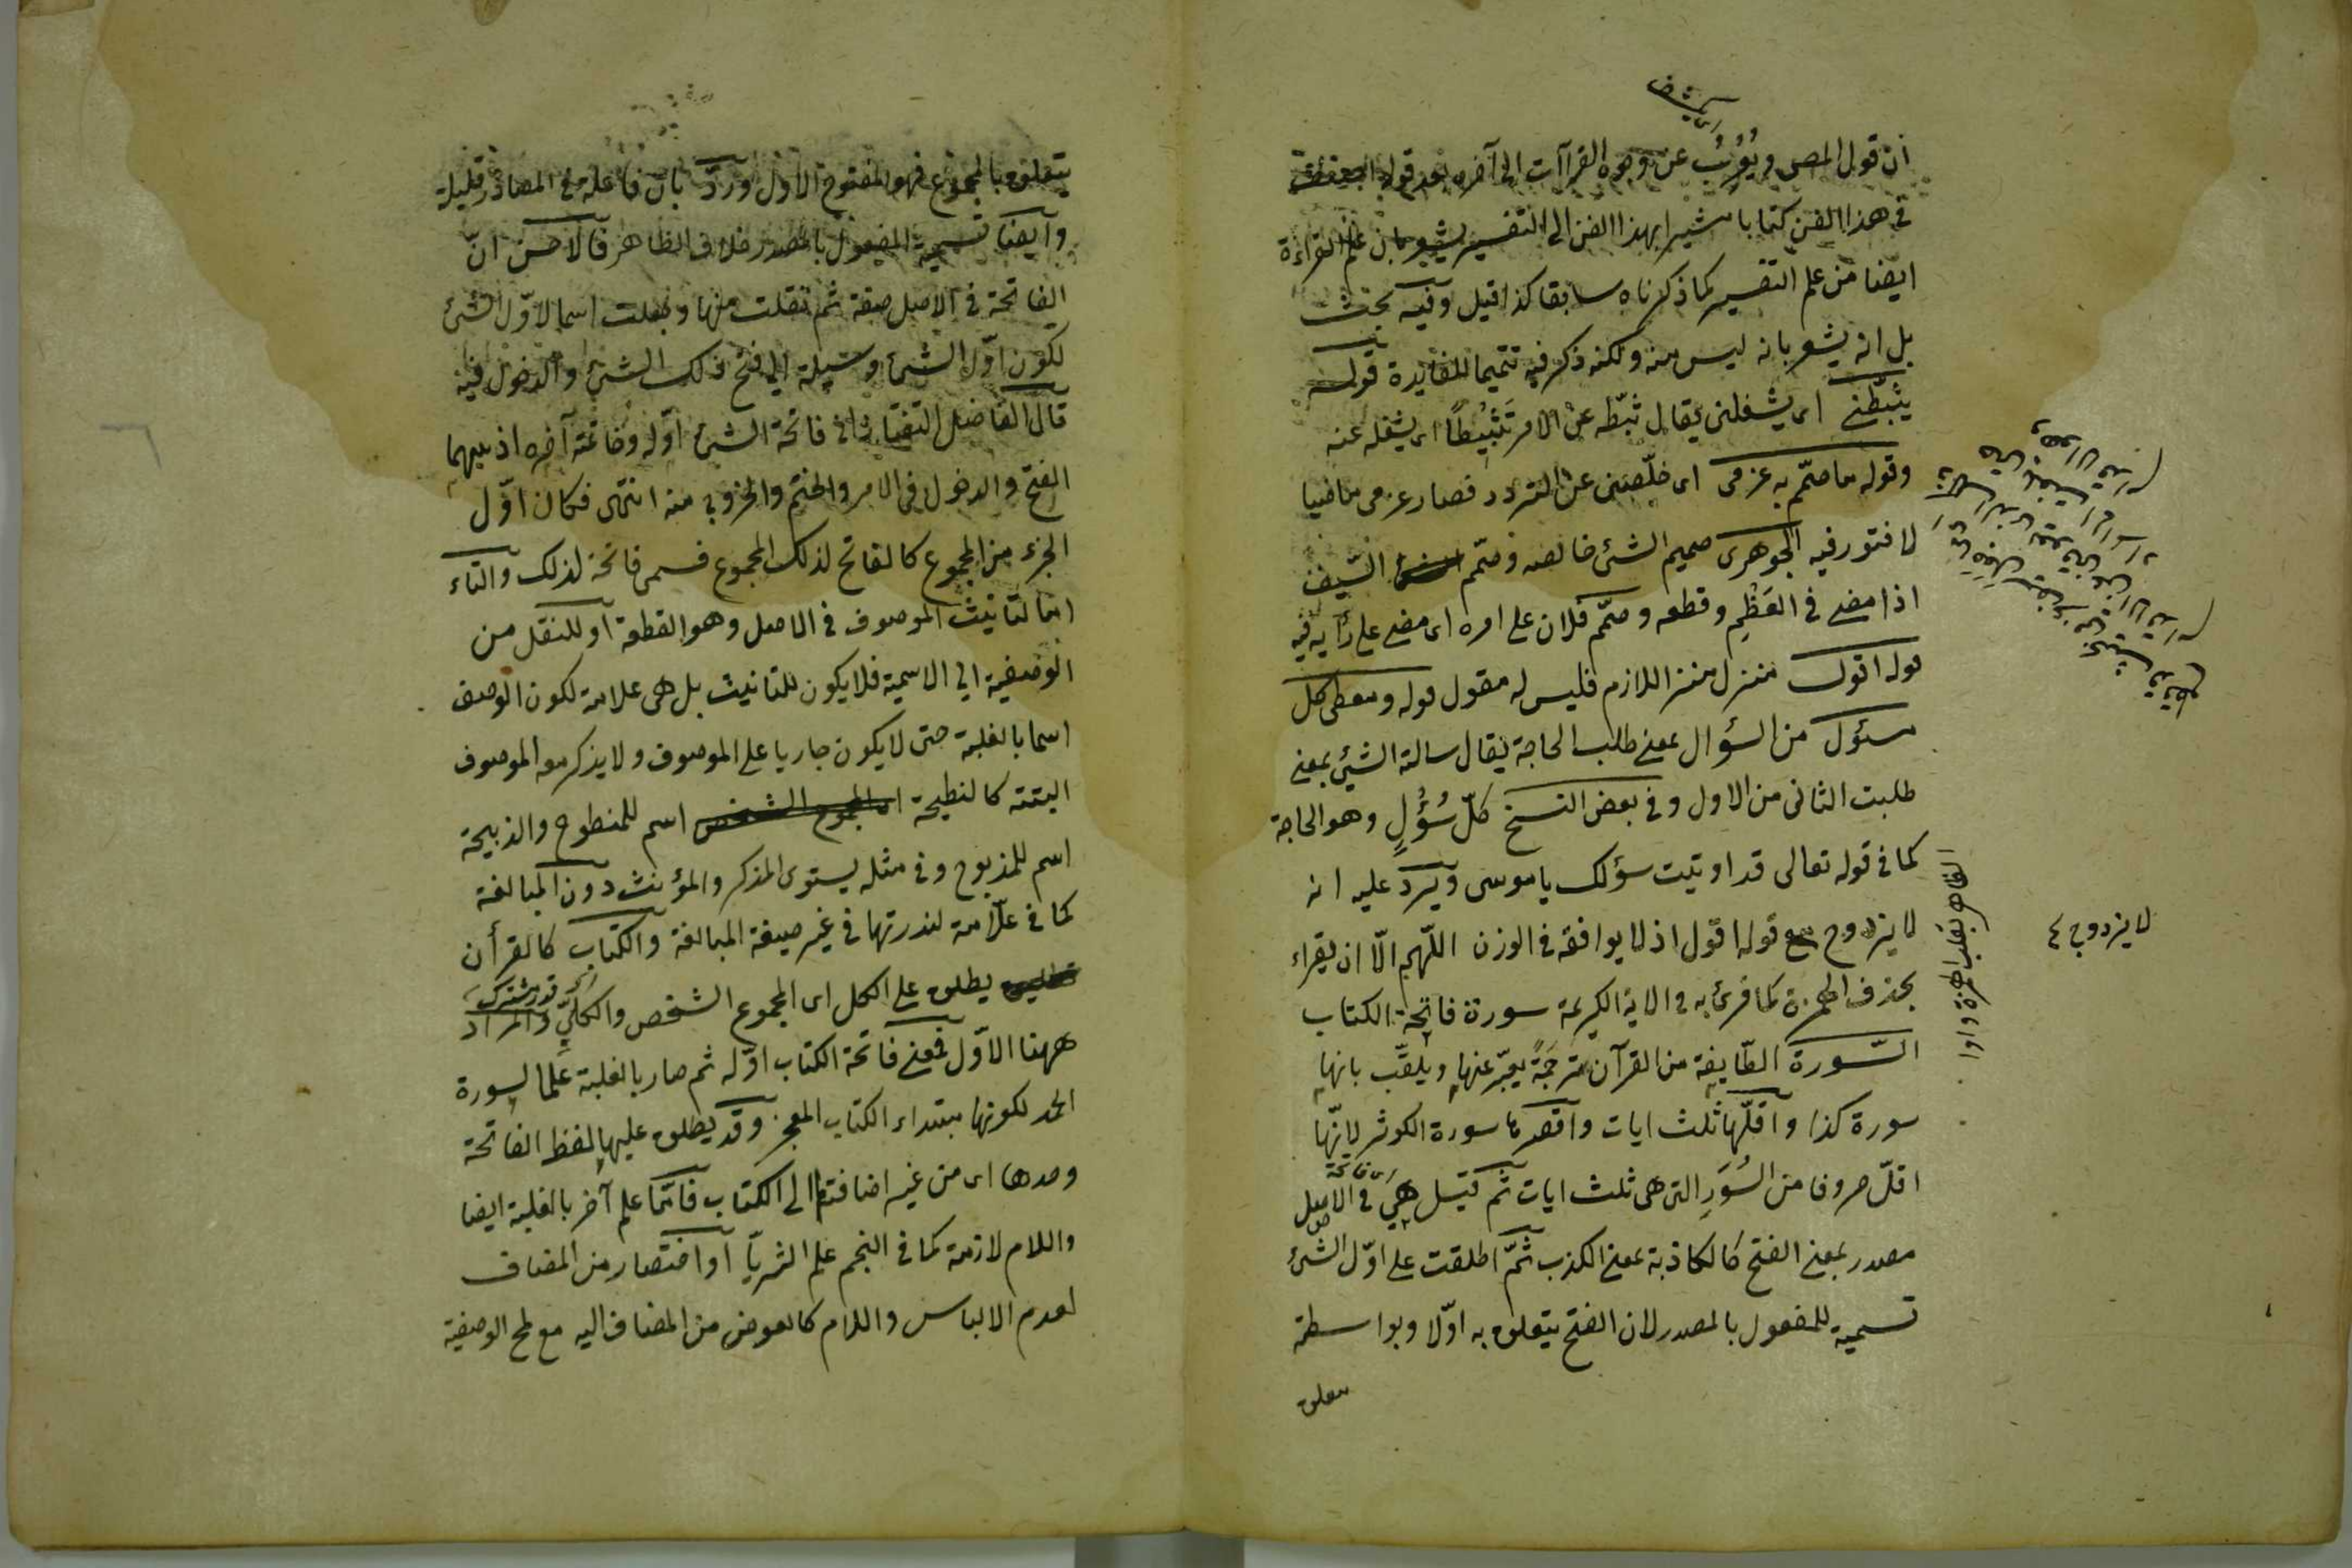 اى يكشف
ان قول المصـ ويُعْرِبُ عن وجوه القراآت الى آخره بعد قوله
فى هذا الفن كتابا مشيرا بهذا الفن الى التفسير يشعر بان علم القراءة
ايضا من علم التفسير كما ذكرناه سابقا كذا قيل وفيه بحث
بل انه يشعر بانه ليس منه ولكنه ذكر فيه تتميما للفايدة قوله
يثبّطنى اى يشغلنى يقال ثبّطه عن الامر تَثْبيْطًا اى يشغله عنه
وقوله ما صمّم به عزمى اى خلّصنى عن التردد فصار عزمى ماضيا
لا فتور فيه الجوهرى صميم الشئ خالصه وصمّم السّيف
اذا مضى فى العَظْمِ وقطعه وصمّم فلان على امره اى مضى على رأيه فيه
قوله اقول منزل منزلة اللازم فليس له مقول قوله ومعطى كل
مسئول من السؤال بمعنى طلب الحاجة يقال سالته الشيئ بمعنى
طلبت الثانى من الاول وفى بعض النسخ كلّ سُؤُلٍ وهو الحاجة
كما فى قوله تعالى قد اوتيت سؤلك يا موسى ويَرِد عليه انه
لا يزدوج مع قوله اقول اذ لا يوافقه فى الوزن اللّهم الّا ان يقراء
بحذف الهمزة كما قرئ به فى الاية الكريمة سورة فاتحة الكتاب
السّورة الطّايفة من القرآن مترجَمَةً يعبّر عنها ويلقّب بانها
سورة كذا واقلّها ثلث ايات واقصرها سورة الكوثر لانّها
اقلّ حروفا من السُوَرِ التى هى ثلث ايات ثم قيل هى فى الاصل
اى فاتحة
مصدر بمعنى الفتح كالكاذبة بمعنى الكذب ثمّ اطلقت على اوّل الشئ
تسمية للمفعول بالمصدر لان الفتح يتعلق به اوّلا وبواسطته
يتعلق
لا يزدوج ٤
الظاهر بقلب الهمزة واوا
يتعلق بالمجموع فهو المفتوح الاول وردّ بان فاعلة فى المصادر قليلة
وايضا تسمية المفعول بالمصدر خلاف الظاهر فالاحسن انّ
الفاتحة فى الاصل صفة ثم نقلت منها وجعلت اسما لاوّل الشئ
لكون اوّل الشئ وسيلة الى فتح ذلك الشئ والدخول فيه
قال الفاضل التفتازانى فاتحة الشئ اوّله وخاتمته آخره اذ بهما
الفتح والدخول فى الامر والختم والخروج منه انتهى فكان اوّل
الجزء من المجموع كالفاتح لذلك المجموع فسمى فاتحة لذلك والتاء
اما لتانيث الموصوف فى الاصل وهو القطعة او للنقل من
الوصفية الى الاسمية فلا يكون للتانيث بل هى علامة لكون الوصف
اسما بالغلبة حتى لا يكون جاريا على الموصوف ولا يذكر معه الموصوف
البتته كالنطيحة اسم للمنطوح والذبيحة
اسم للمذبوح وفى مثله يستوى المذكر والمؤنث دون المبالغة
كما فى علّامة لندرتها فى غير صيغة المبالغة والكتاب كالقرأن
يطلق على الكل اى المجموع الشخص والكلّيّ والمراد
اى قدر مشترك
ههنا الاوّل فمعنى فاتحة الكتاب اوّله ثم صار بالغلبة عَلَما لسورة
الحمد لكونها مبتداء الكتاب المعجز وقد يطلق عليها لفظ الفاتحة
وحدها اى من غير اضافتها الى الكتاب فامّا علم آخر بالغلبة ايضا
واللام لازمة كما فى النجم علم الثريّا او اختصار من المضاف
لعدم الالباس واللام كالعوض من المضاف اليه مع لمح الوصفية